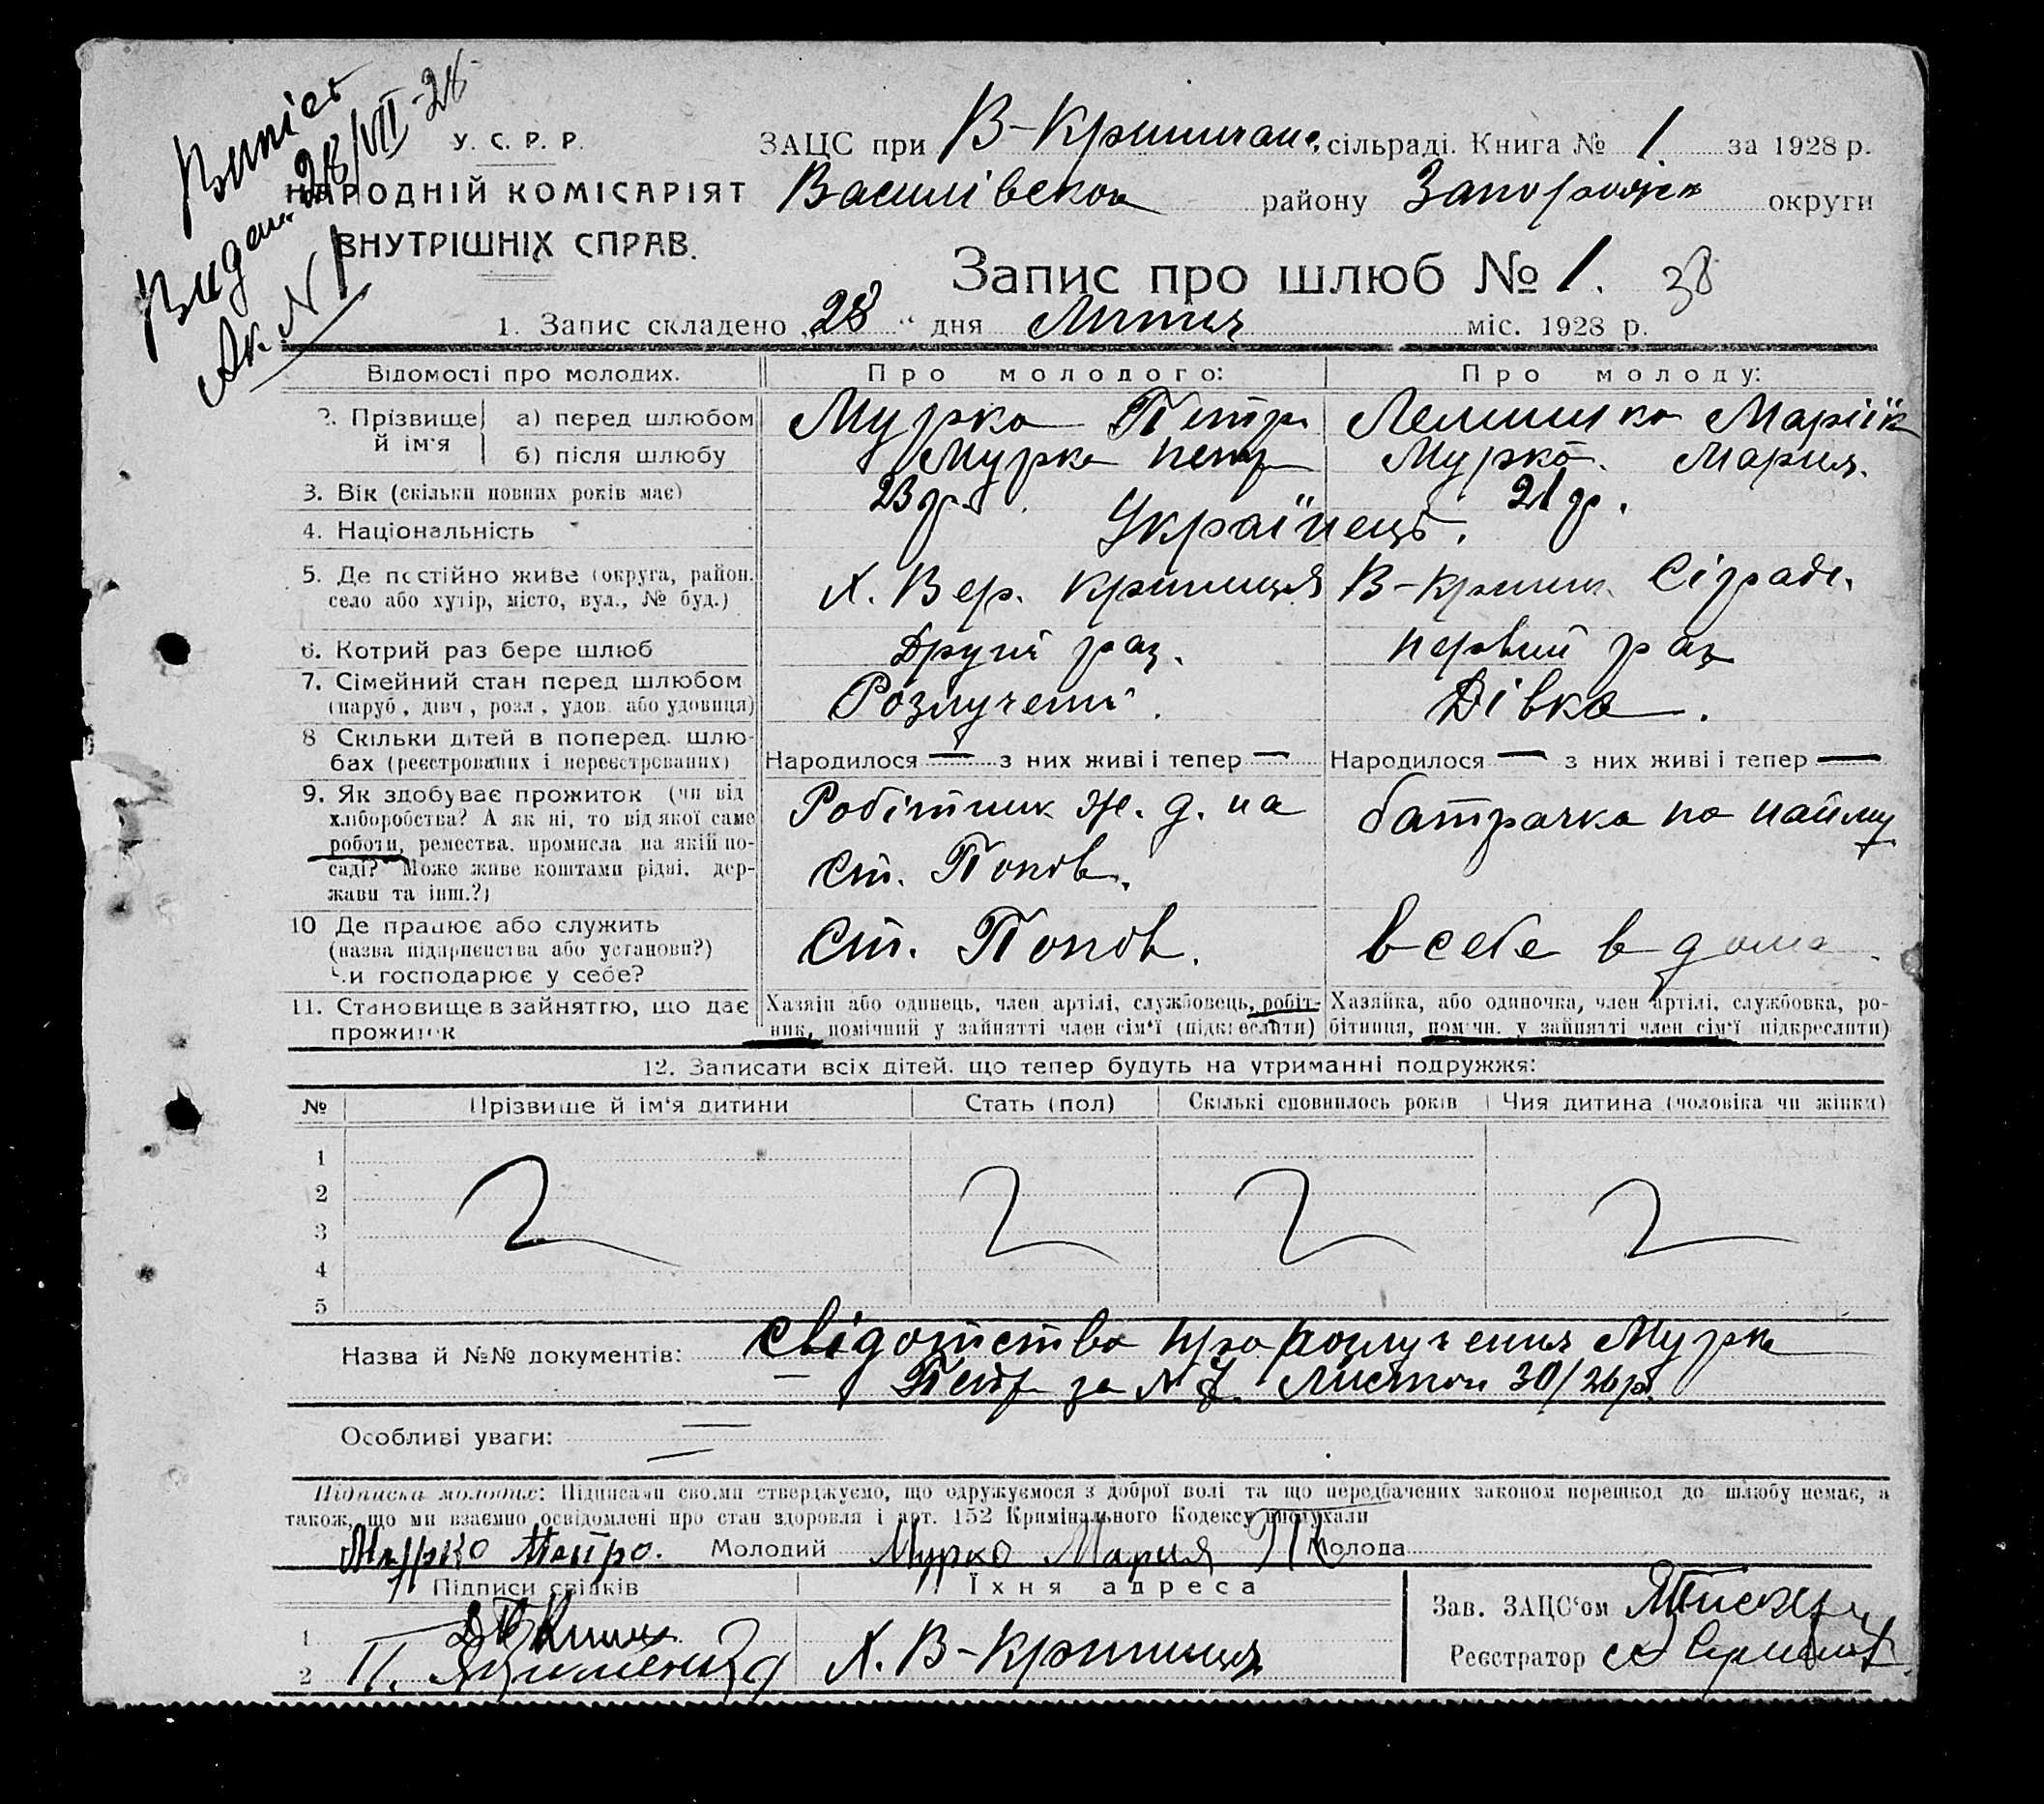 Випіс
Видан. 28/VII-28
Ак. № 1
У. С. Р. Р.
НАРОДНІЙ КОМІСАРІЯТ
ВНУТРІШНІХ СПРАВ.
ЗАЦС при В-Криничан. сільраді. Книга № 1. за 1928 р.
Василівском району Запорожск округи
Запис про шлюб № 1. 38
1. Запис складено „28" дня Липня міс. 1928 р.
Відомості про молодих. Про молодого: Про молоду:
2. Прізвище й ім'я а) перед шлюбом Мурко Петр Марія
б) після шлюбу Мурко Петр Мурко. Мария.
3. Вік (скільки повних років має) 23 р. 21 р.
4. Національність Українець.
5. Де постійно живе (округа, район, село або хутір, місто, вул., № буд.) Х. Вер. Криниця В-Кринич. Сільраде.
6. Котрий раз бере шлюб Другий раз. первий раз
7. Сімейний стан перед шлюбом (паруб., дівч., розл., удов. або удовиця) Розлучений. Дівка.
8 Скільки дітей в поперед. шлюбах (реєстрованих і нереєстрованих) Народилося — з них живі і тепер — Народилося — з них живі і тепер —
9. Як здобуває прожиток (чи від хліборобства? А як ні, то від якої саме роботи, ремества, промисла на якій посаді? Може живе коштами рідні, держави та інш.?) Робітник ж. д. на ст. Попов. батрачка по найму
10 Де працює або служить (назва підприємства або установи?) Чи господарює у себе? Ст. Попов. в себе в дома.
11. Становище в зайняттю, що дає прожиток Хазяїн або одинець, член артілі, службовець, робітник, помічний у зайнятті член сім'ї (підкреслити) Хазяйка, або одиночка, член артілі, службовка, робітниця, помічн. у зайнятті член сім'ї підкреслити)
12. Записати всіх дітей, що тепер будуть на утриманні подружжя:
№ Прізвище й ім'я дитини Стать (пол) Скількі сповнилось років Чия дитина (чоловіка чи жінки)
1
2
3
4
5
Назва й №№ документів: свідотство про розлучения Мурко
Петр за № 7. Листом 30/26 р.
Особливі уваги:
Підписка молодих: Підписами своїми стверджуємо, що одружуємося з доброї волі та що передбачених законом перешкод до шлюбу немає, а
також, що ми взаємно освідомлені про стан здоровля і арт. 152 Кримінального Кодексу вислухали
Мурко Петро. Молодий Мурко Мария Молода
Підписи свідків Їхня адреса
Зав. ЗАЦС'ом
1
2 П. Х. В-Криниця
Реєстратор